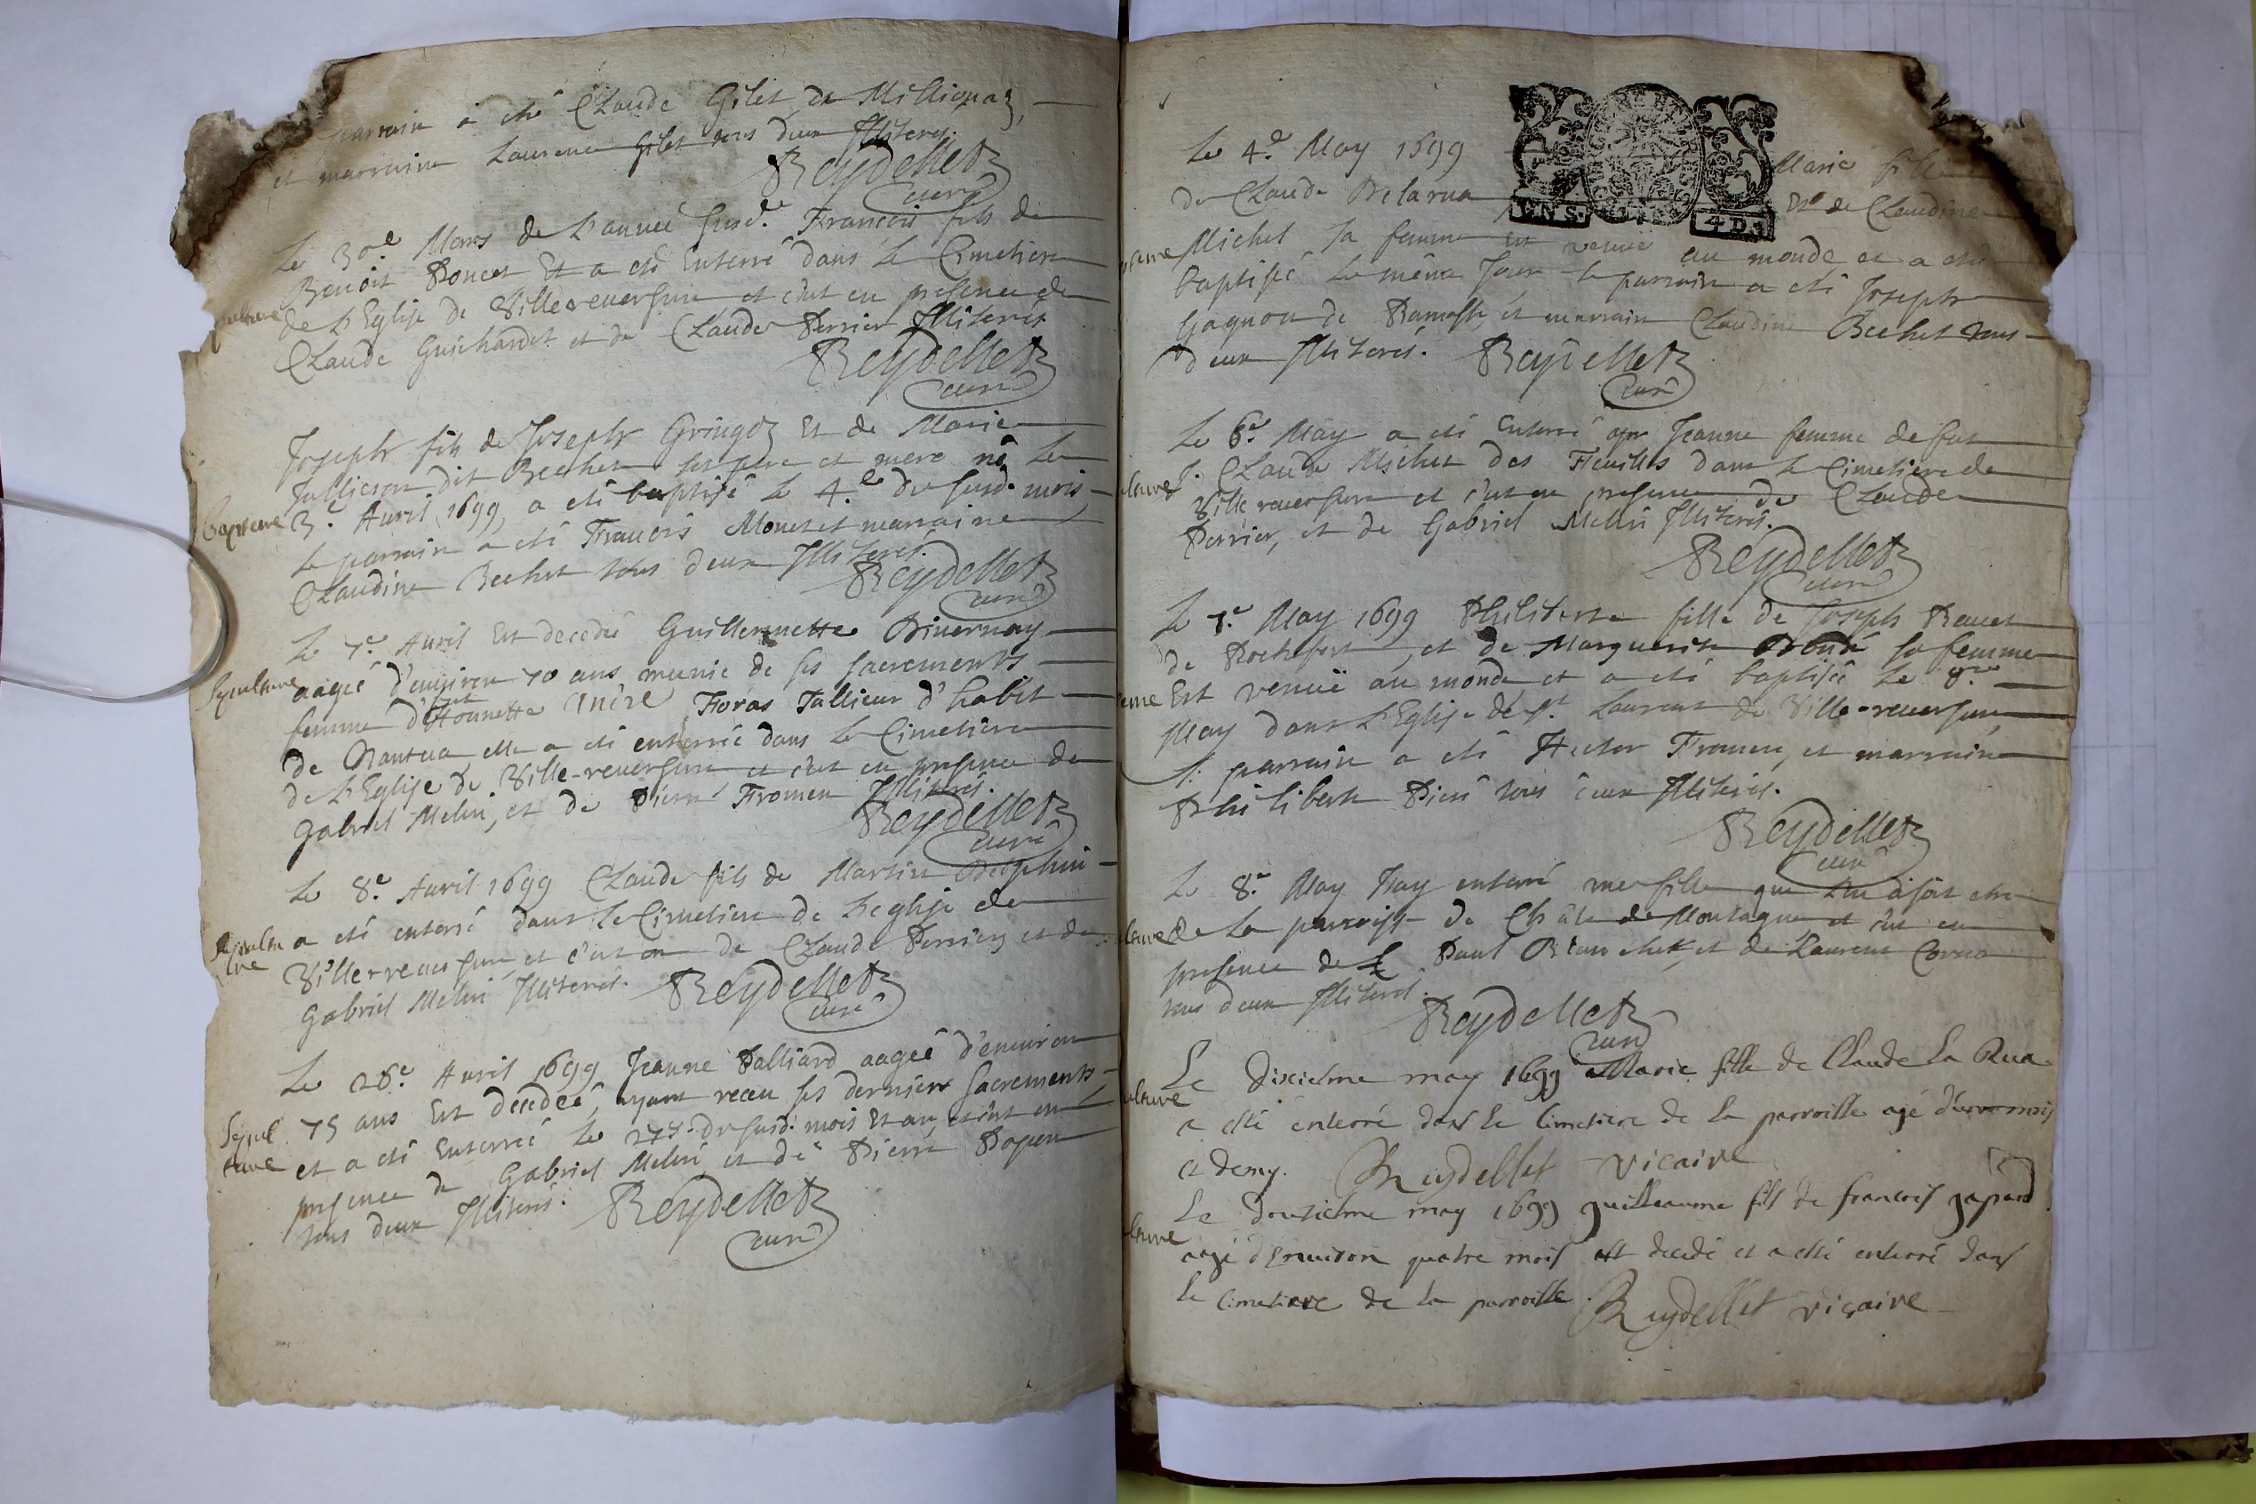 parrain a eté Claude Gilet de Millignaz,
et marraine Laurence Gilet tous deux Illiterez.
Reydellet
curé
Le 30e. Mars de L'année susd. François fils de
Benoit Poncet Et a eté Enterré dans le Cimetiere
de L'Eglise de Villereversure et c'est en presence de
Claude Guichardet et de Claude Perrier Illiterés
Reydellet
curé
Joseph fils de Joseph Gringoz Et de Marie
Jullieron dit Bechet ses pere et mere né Le
Bapteme 3e. Avril 1699, a eté baptisé le 4.e du susd. mois,
le parrain a eté François Monet et marraine
Claudine Bechet tous deux Illiterés.
Reydellet
curé
Le 7e. Avril Est decedée Guillermette Divernay
Sepulture aagée d'environ 70 ans munie de ses sacrements
femme d'honnette André Foras Tallieur d'habit
de Nantua, elle a eté enterrée dans le Cimetiere
de L'Eglise de Ville-reversure et c'est en presence de
Gabriel Melin, et de Pierre Fromen Illiterés.
Reydellet
curé
Le 8e. Avril 1699 Claude fils de Martin Delphin
Sepulture a eté enterré dans le Cimetiere de L'eglise de
Ville-reversure, et c'est en de Claude Perrier et de
Gabriel Melin Illiterés.
Reydellet
curé
Le 26e. Avril 1699 Jeanne Palliard aagée d'environ
75 ans Est decedée, ayant receu ses derniers sacrements,
Sepulture et a eté Enterrée Le 27e. du susd. mois Et an, et c'est en
presence de Gabriel Melin et de Pierre Papon
tous deux Illiterés.
Reydellet
curé
Le 4.e May 1699 Marie fille
de Claude Delarua Et de Claudine
Michel sa femme est venue au monde et a eté
baptisée le même Jour le parrain a eté Joseph
Gagnon de Ramasse, et marraine Claudine Bechet tous
deux Illiterés.
Reydellet
curé
Le 6e. May a eté Enterré Jeanne femme de feu
Claude Michel des Feuilles dans le Cimetiere de
Ville reversure et c'est en presence de Claude
Perrier, et de Gabriel Melin Illiterés.
Reydellet
curé
Le 7.e May 1699 Philiberte fille de Joseph Poncet
de Rochefort, et de Marguerite sa femme
Est venuë au monde et a eté baptisée le 8me
May dans L'Eglise de St. Laurent de Ville-reversure
le parrain a eté Hector Fromen, et marraine
Philiberte Piere tous deux Illiterés.
Reydellet
curé
Le 8.e May J'ay enterré une fille que l'on disoit etre
de La parroisse de Châte de Montagne et c'est en
presence de Paul Blanchet, et de Laurent Cornu
tous deux Illiterés.
Reydellet
curé
Le dixiesme may 1699 Marie fille de Claude La Rua
a esté enterré dans le Cimetiere de la parroisse agé d'un mois
et demy. Reydellet vicaire
Le douziesme may 1699 guilleaume fils de françois gaspard
agé d'environ quatre mois est decedé et a esté enterré dans
le Cimetiere de la parroisse. Reydellet viçaire